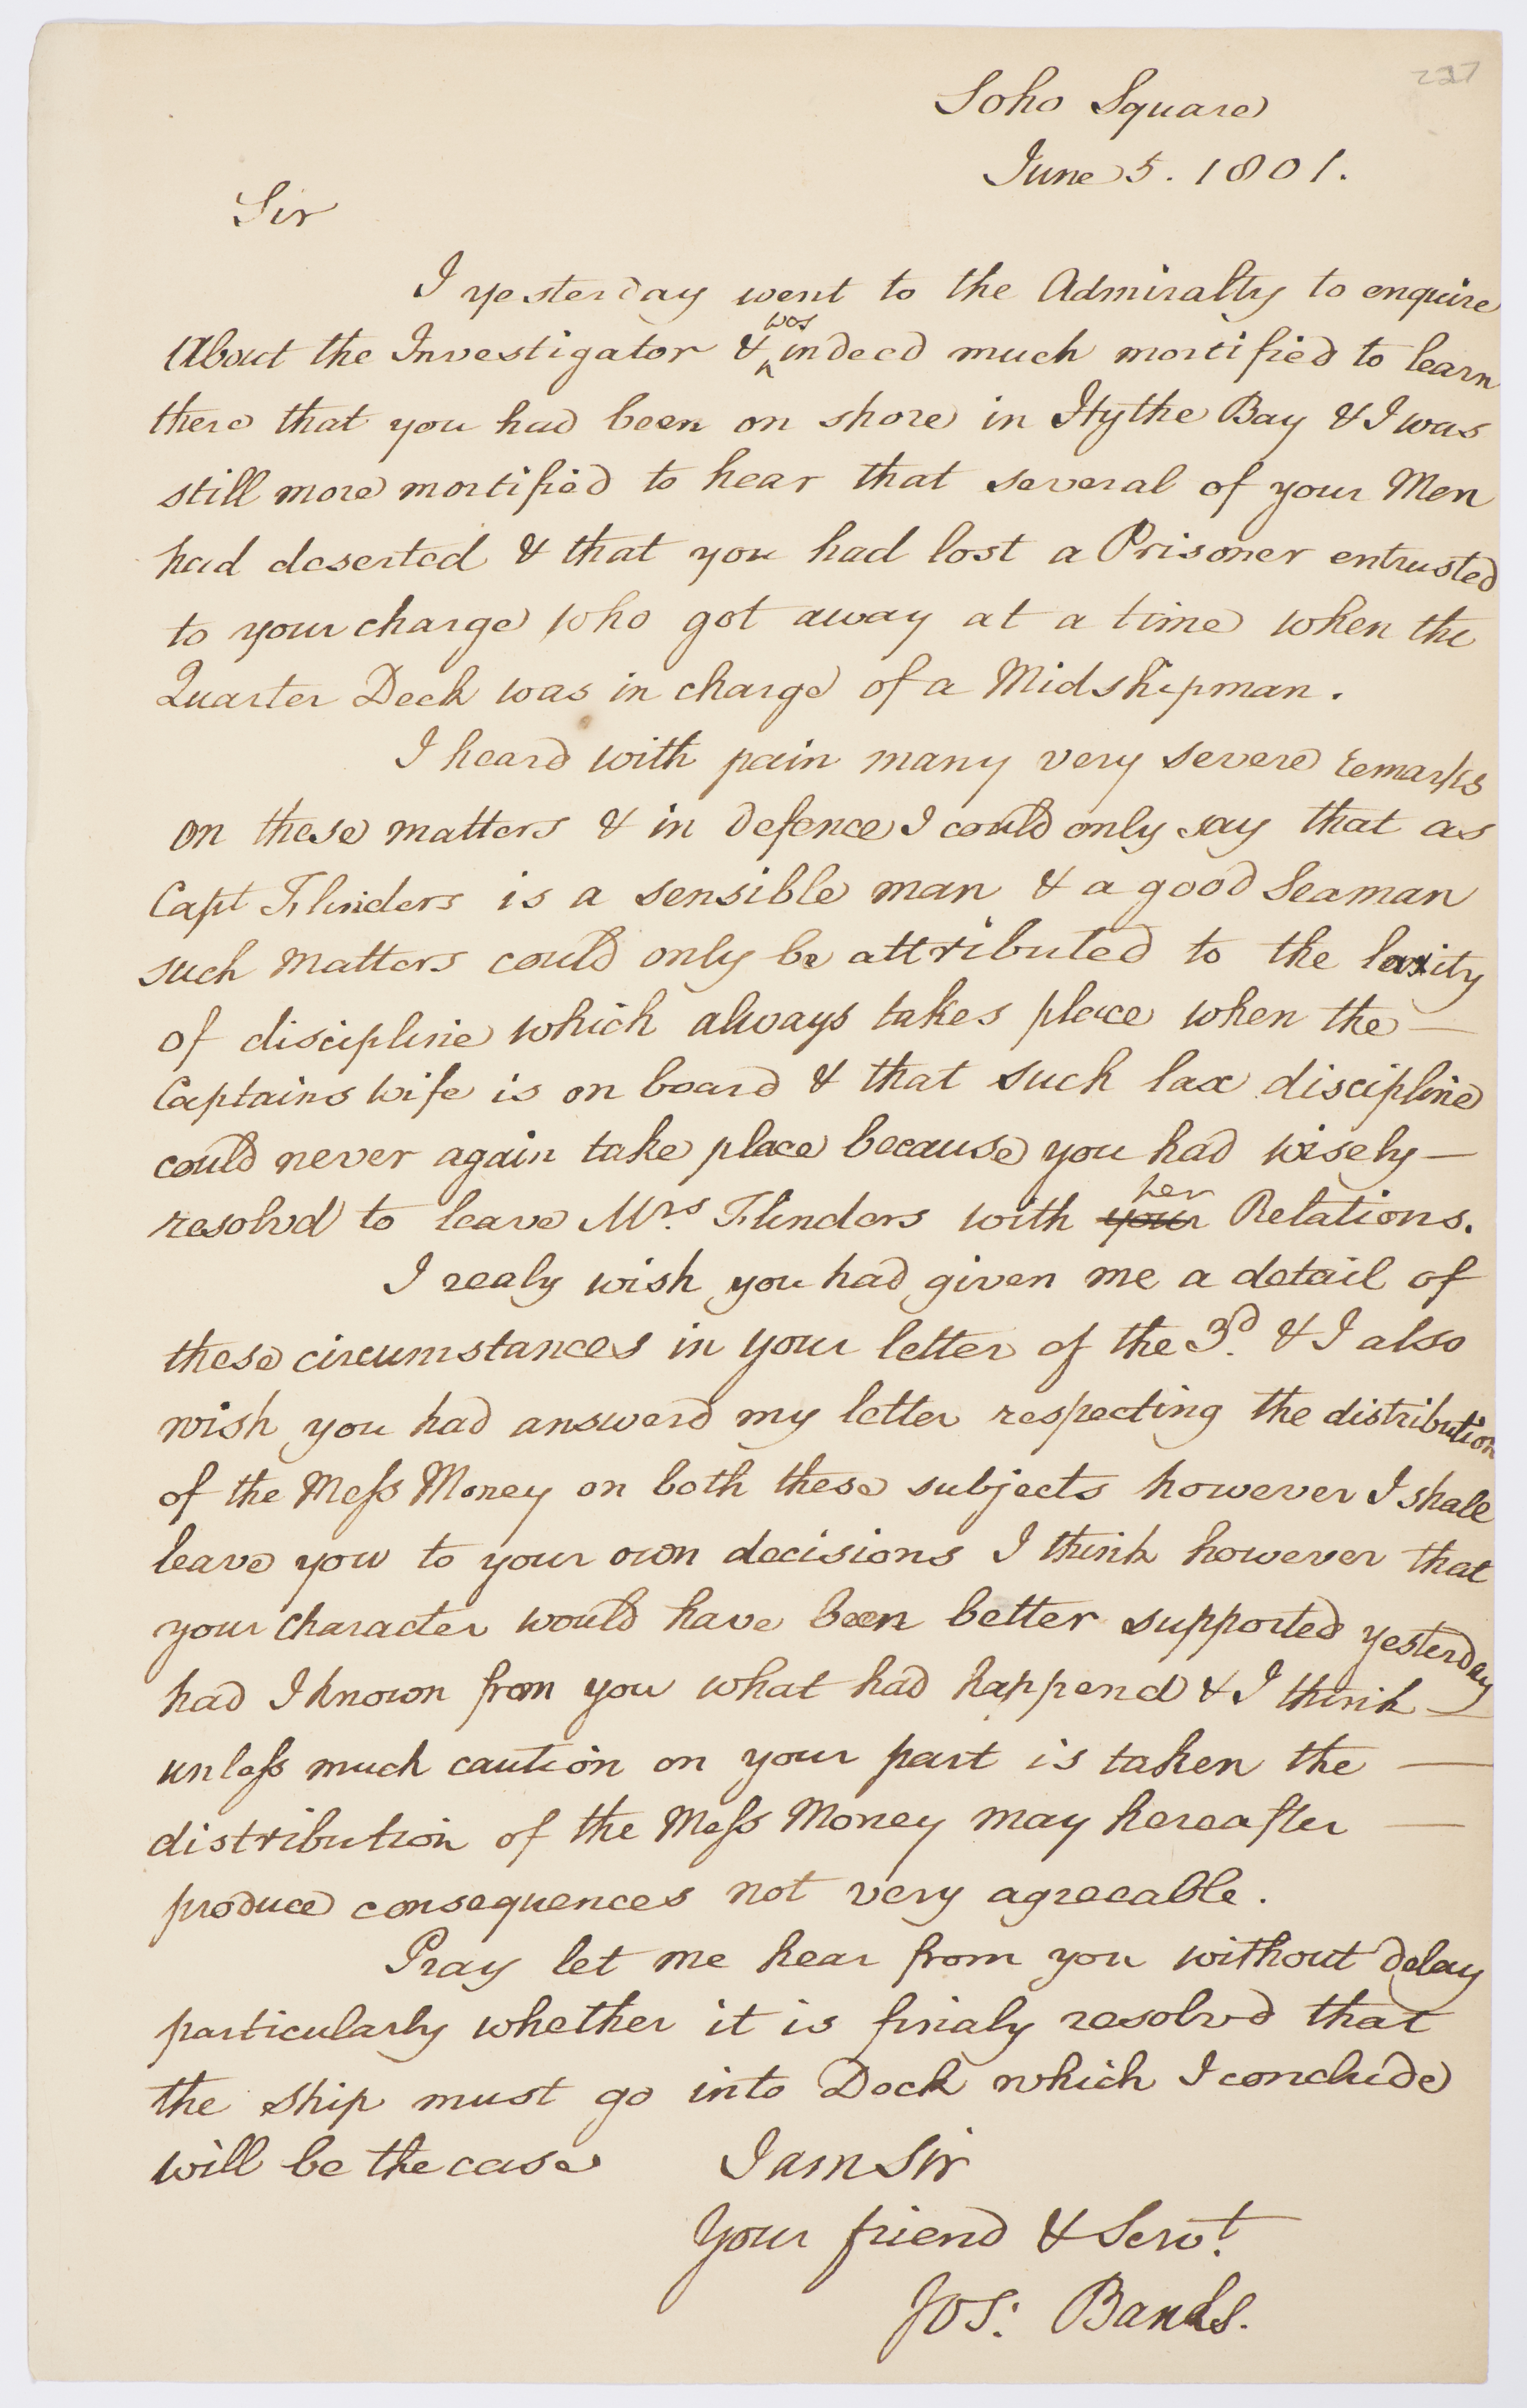 227
Soho Square
June 5. 1801.
Sir
I yesterday went to the Admiralty to enquire
About the Investigator & was indeed much mortified to learn
there that you had been on shore in Hythe Bay & I was
still more mortified to hear that several of your Men
had deserted & that you had lost a Prisoner entrusted
to your charge who got away at a time when the
Quarter Deck was in charge of a Midshipman.
I heard with pain many very severe remarks
on these matters & in defence I could only say that as
Capt Flinders is a sensible man & a good Seaman
such matters could only be attributed to the laxity
of discipline which always takes place when the —
Captains wife is on board & that such lax discipline
could never again take place because you had wisely —
resolvd to leave Mrs. Flinders with your her Relations.
I realy wish you had given me a detail of
these circumstances in your letter of the 3d. & I also
wish you had answerd my letter respecting the distribution
of the Mess Money on both these subjects however I shall
leave you to your own decisions I think however that
your character would have been better supported yesterday
had I known from you what had happend & I think —
unless much caution on your part is taken the —
distribution of the Mess Money may hereafter —
produce consequences not very agreeable.
Pray let me hear from you without delay
particularly whether it is finaly resolvd that
the ship must go into Dock which I conclude
will be the case I am Sir
Your friend & Servt.
Jos: Banks.